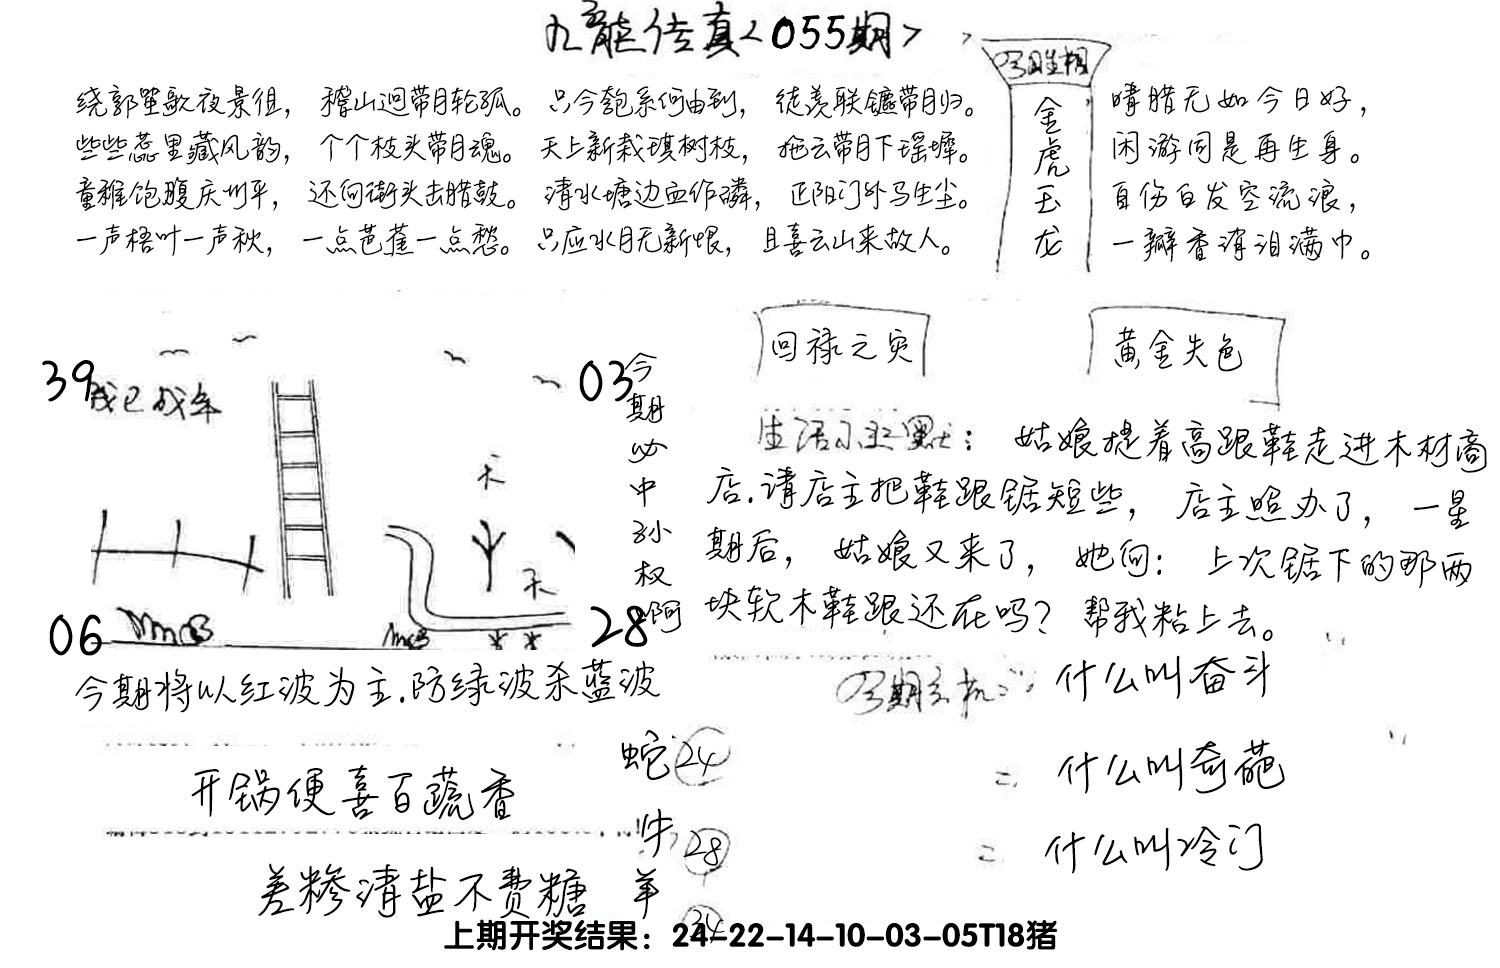 九龙传真<055期>
绕郭笙歌夜景徂，稽山迴带月轮孤。只今匏系何由到，徒羡联镳带月归。
些些蕊里藏风韵，个个枝头带月魂。天上新栽琪树枝，拖云带月下瑶墀。
童稚饱腹庆升平，还向街头击腊鼓。清水塘边血作磷，正阳门外马生尘。
一声梧叶一声秋，一点芭蕉一点愁。只应水月无新恨，且喜云山来故人。
金虎玉龙
晴腊无如今日好，
闲游同是再生身。
自伤白发空流浪，
一瓣香消泪满巾。
39
03
06
28
今期必中孙权啊
今期将以红波为主.防绿波杀蓝波
开锅便喜百蔬香
差糁清盐不费糖
蛇 24
牛 28
羊 34
回禄之灾
黄金失色
生活小幽默：姑娘提着高跟鞋走进木材商
店.请店主把鞋跟锯短些，店主照办了，一星
期后，姑娘又来了，她问：上次锯下的那两
块软木鞋跟还在吗？帮我粘上去。
什么叫奋斗
什么叫奇葩
什么叫冷门
上期开奖结果：24-22-14-10-03-05T18猪